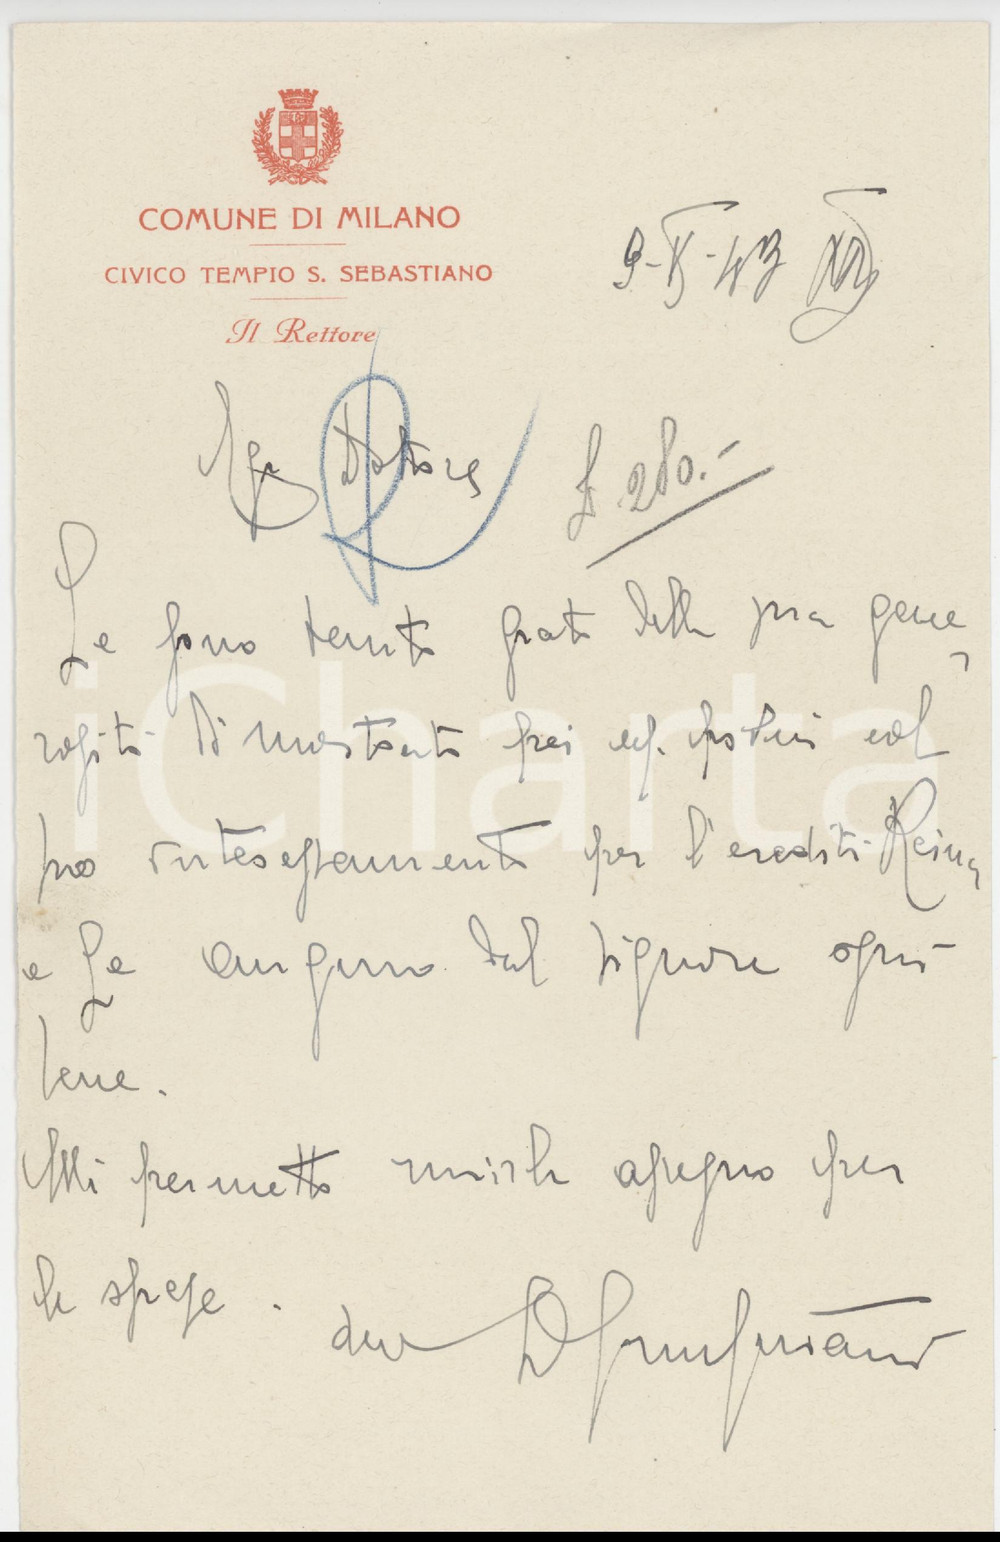 COMUNE DI MILANO
CIVICO TEMPIO S. SEBASTIANO
Il Rettore
Egr Dottore
£ 280.-
Le sono tenuto grato della sua gene
rosità dimostrata nel
suo interessamento per l'eredità Reina
e Le auguro dal Signore ogni
bene.
Mi permetto unirle assegno per
le spese.
don
iCharta